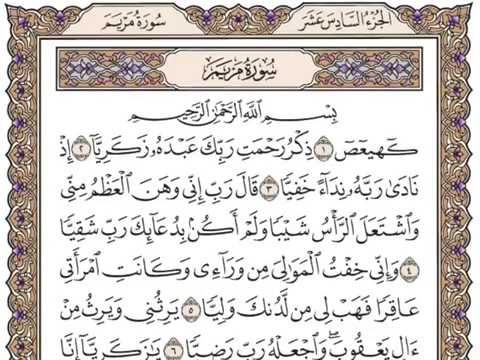 الجزء السادس عشر
سورة مريم
سُورَةُ مَرْيَمَ
بِسْمِ ٱللَّهِ ٱلرَّحْمَٰنِ ٱلرَّحِيمِ
كٓهيعٓصٓ ١ ذِكْرُ رَحْمَتِ رَبِّكَ عَبْدَهُۥ زَكَرِيَّآ ٢ إِذْ
نَادَىٰ رَبَّهُۥ نِدَآءً خَفِيًّا ٣ قَالَ رَبِّ إِنِّي وَهَنَ ٱلْعَظْمُ مِنِّي
وَٱشْتَعَلَ ٱلرَّأْسُ شَيْبًا وَلَمْ أَكُنۢ بِدُعَآئِكَ رَبِّ شَقِيًّا
٤ وَإِنِّي خِفْتُ ٱلْمَوَٰلِيَ مِن وَرَآءِي وَكَانَتِ ٱمْرَأَتِي
عَاقِرًا فَهَبْ لِي مِن لَّدُنكَ وَلِيًّا ٥ يَرِثُنِي وَيَرِثُ مِنْ
ءَالِ يَعْقُوبَۖ وَٱجْعَلْهُ رَبِّ رَضِيًّا ٦ يَٰزَكَرِيَّآ إِنَّا